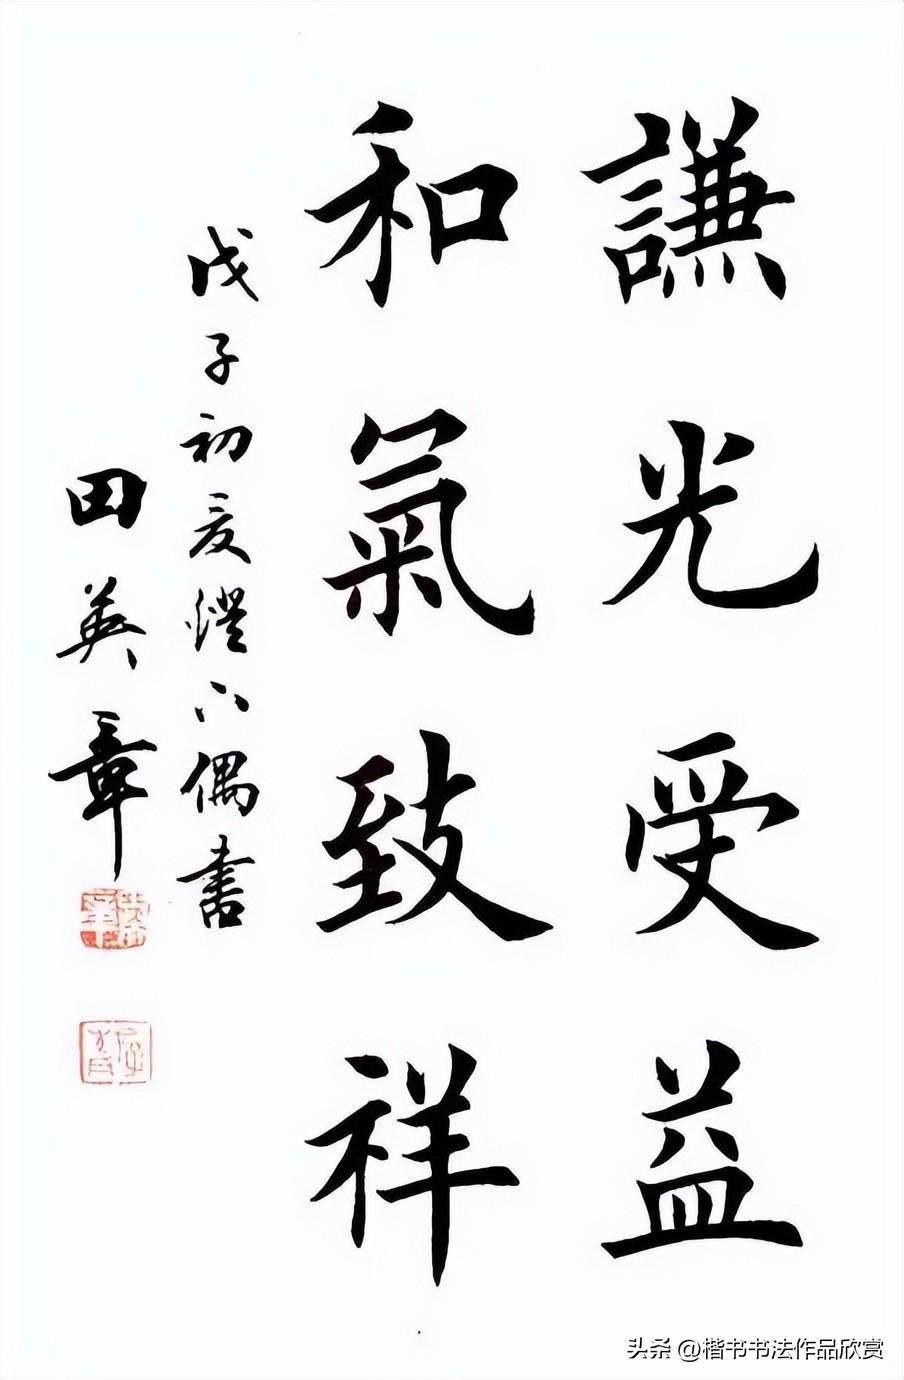 謙光受益
和氣致祥
戊子初夏燈下偶書
田英章
头条 @楷书书法作品欣赏